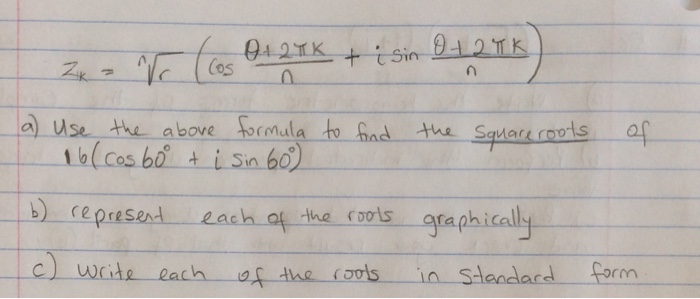 Zₖ = ⁿ√r (cos (θ+2πK)/n + i sin (θ+2πK)/n)
a) use the above formula to find the square roots of
16(cos 60° + i sin 60°)
b) represent each of the roots graphically
c) write each of the roots in standard form.